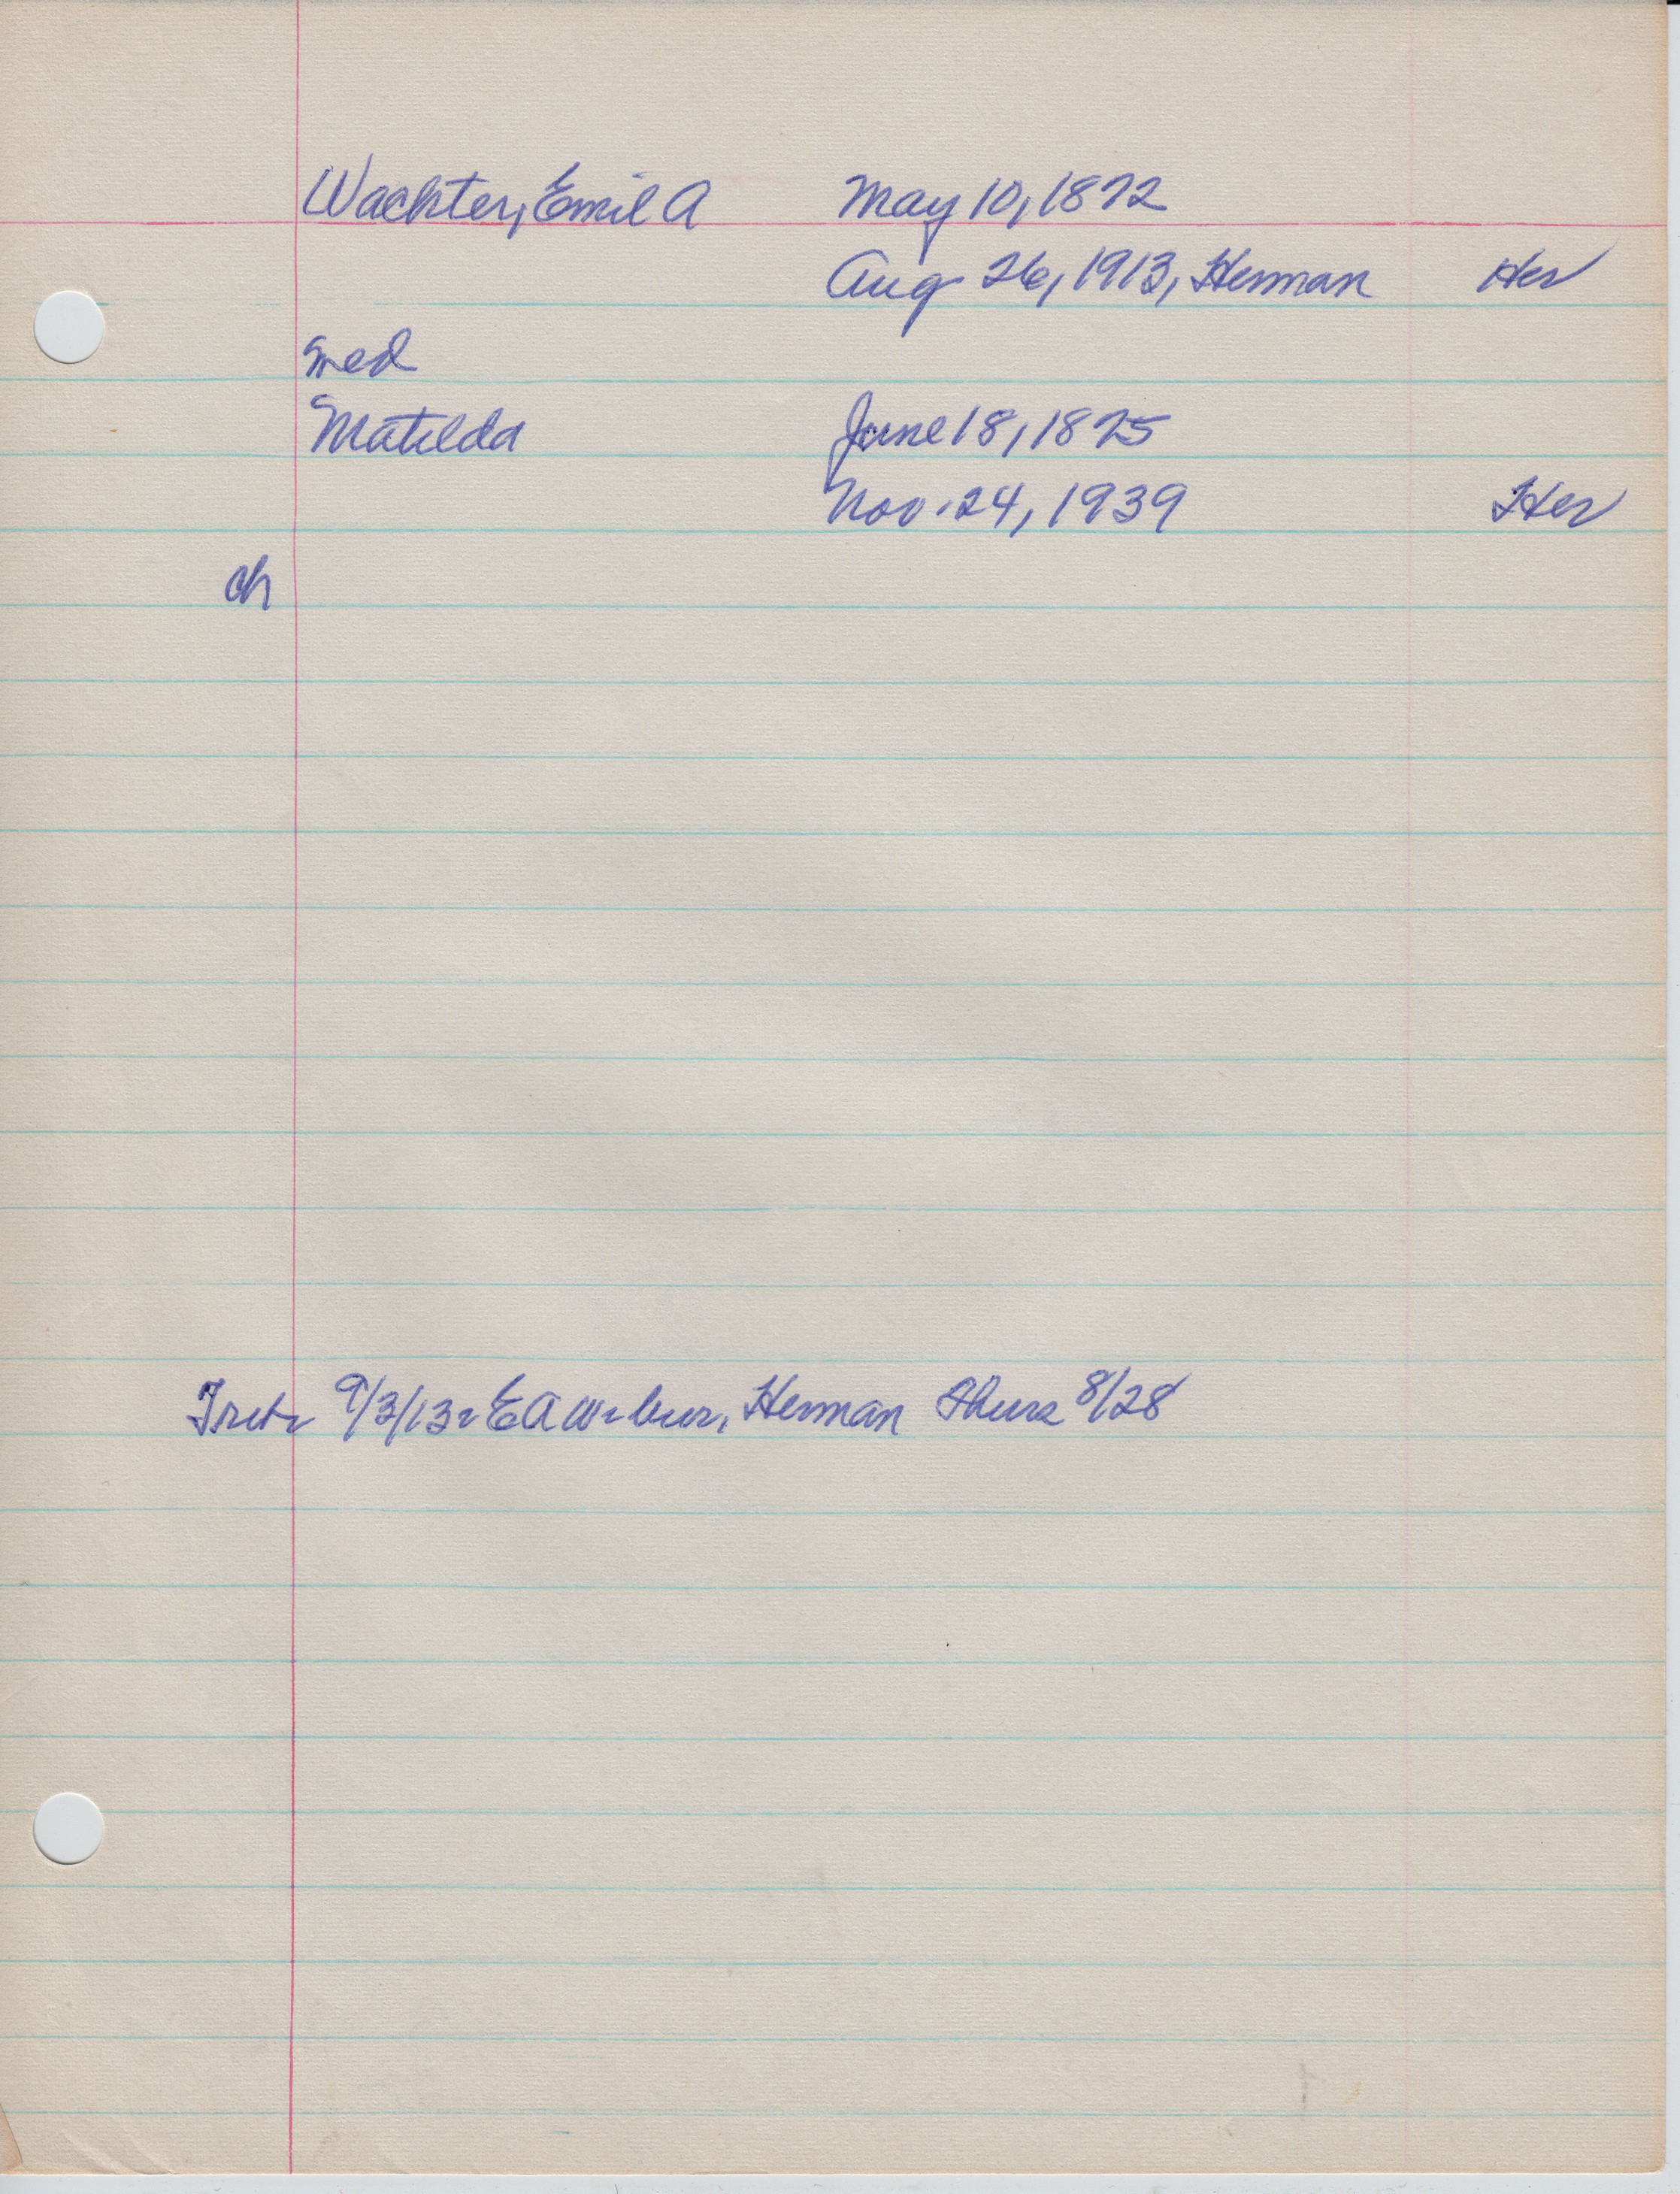 Wachter, Emil A May 10, 1872
Aug 26, 1913, Herman Her
med
Matilda June 18, 1875
Nov. 24, 1939 Her
ch
9/3/13: E A W Herman Thurs 8/28